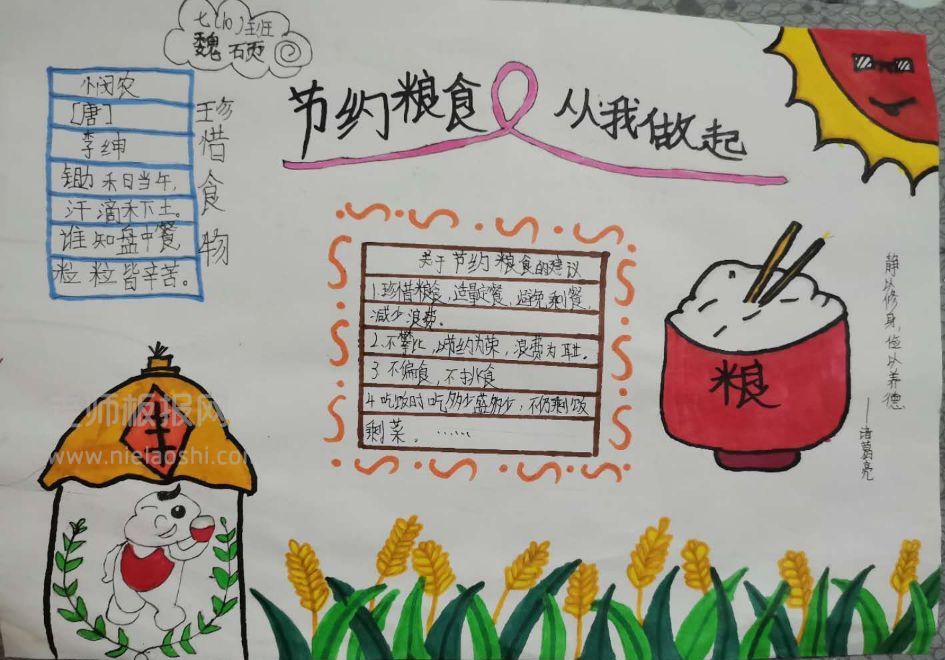 七(10)班
魏硕
节约粮食 从我做起
悯农
[唐]
李绅
锄禾日当午,
汗滴禾下土。
谁知盘中餐
粒粒皆辛苦。
珍惜食物
关于节约粮食的建议
1.珍惜粮食,适量定餐,避免剩餐,
减少浪费。
2.不攀比,以节约为荣,浪费为耻。
3 不偏食,不挑食
4 吃饭时吃多少盛多少,不扔剩饭
剩菜。……
粮
静以修身,俭以养德
——诸葛亮
丰
师板报网
www.nielaoshi.com